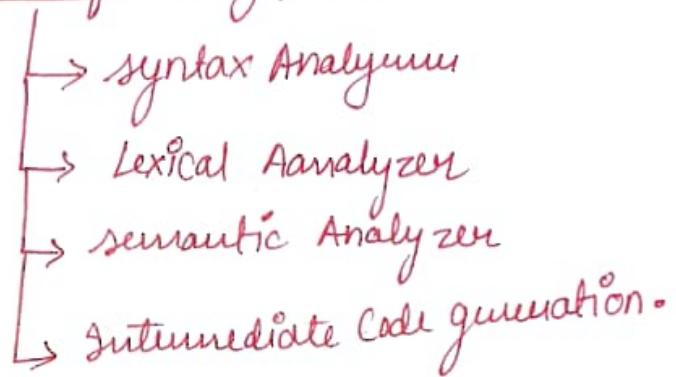 → syntax Analyzer
→ Lexical Aanalyzer
→ semantic Analyzer
→ Intermediate Code generation.